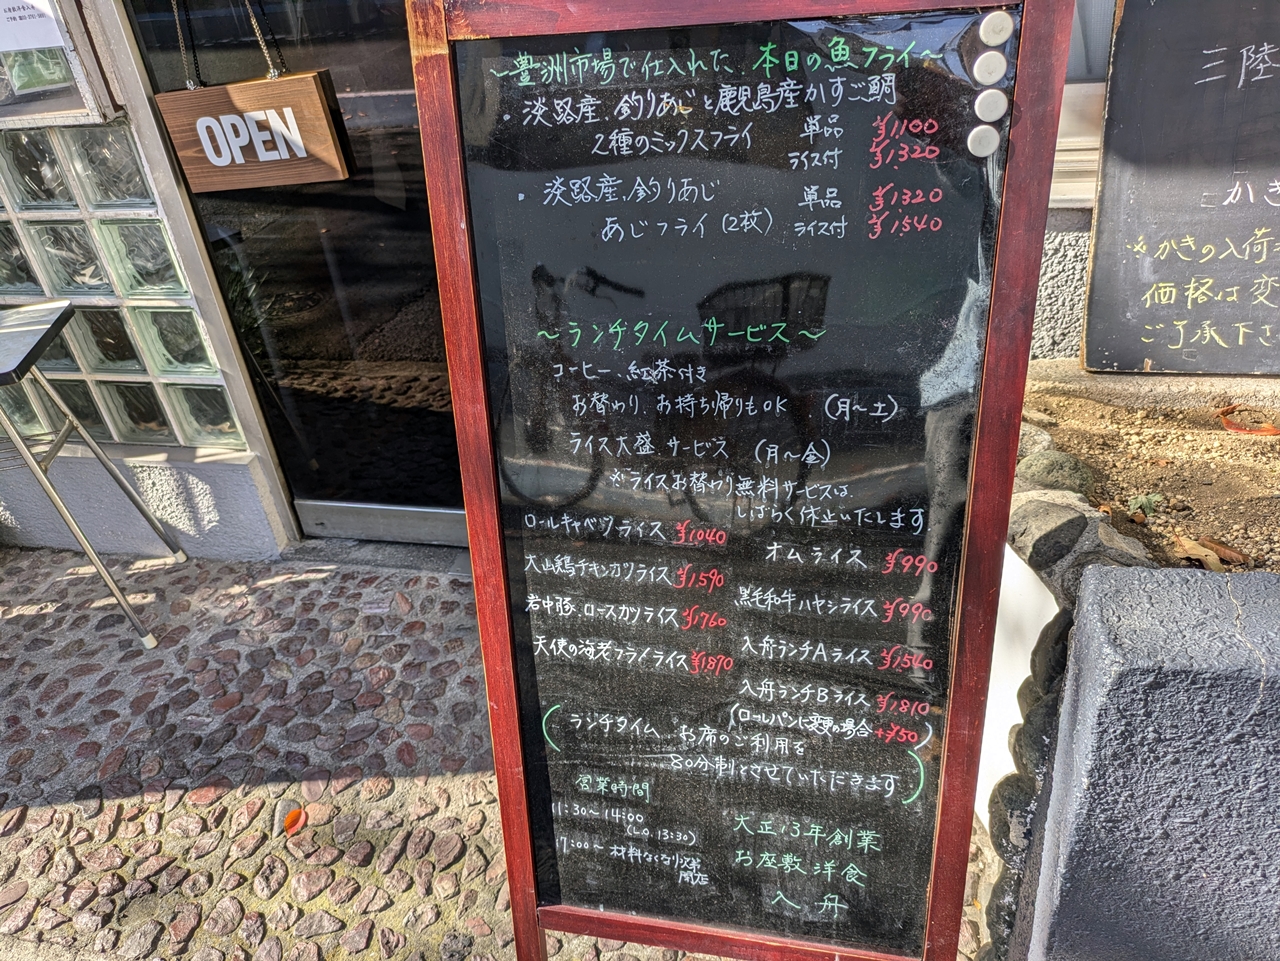 OPEN
～豊洲市場で仕入れた 本日の魚フライ～
・淡路産、釣りあじと鹿児島産かすご鯛
2種のミックスフライ 単品 ¥1100
ライス付 ¥1320
・淡路産、釣りあじ 単品 ¥1320
あじフライ(2枚) ライス付 ¥1540
～ランチタイムサービス～
コーヒー、紅茶付き
お替わり、お持ち帰りもOK (月～土)
ライス大盛 サービス (月～金)
※ライスお替わり無料サービスは、
しばらく休止いたします。
ロールキャベツライス ¥1040
オムライス ¥990
大山鶏チキンカツライス ¥1,590
黒毛和牛ハヤシライス ¥990
岩中豚、ロースカツライス ¥1760
入舟ランチAライス ¥1540
天使の海老フライライス ¥1870
入舟ランチBライス ¥1810
(ロールパンに変更の場合 +¥50)
(ランチタイム、お席のご利用を
80分制とさせていただきます)
営業時間
11:30～14:00
(L.O. 13:30)
17:00～材料なくなり次第
閉店
大正13年創業
お座敷洋食
入舟
三陸
かき
※かきの入荷
価格は変
ご了承下さ